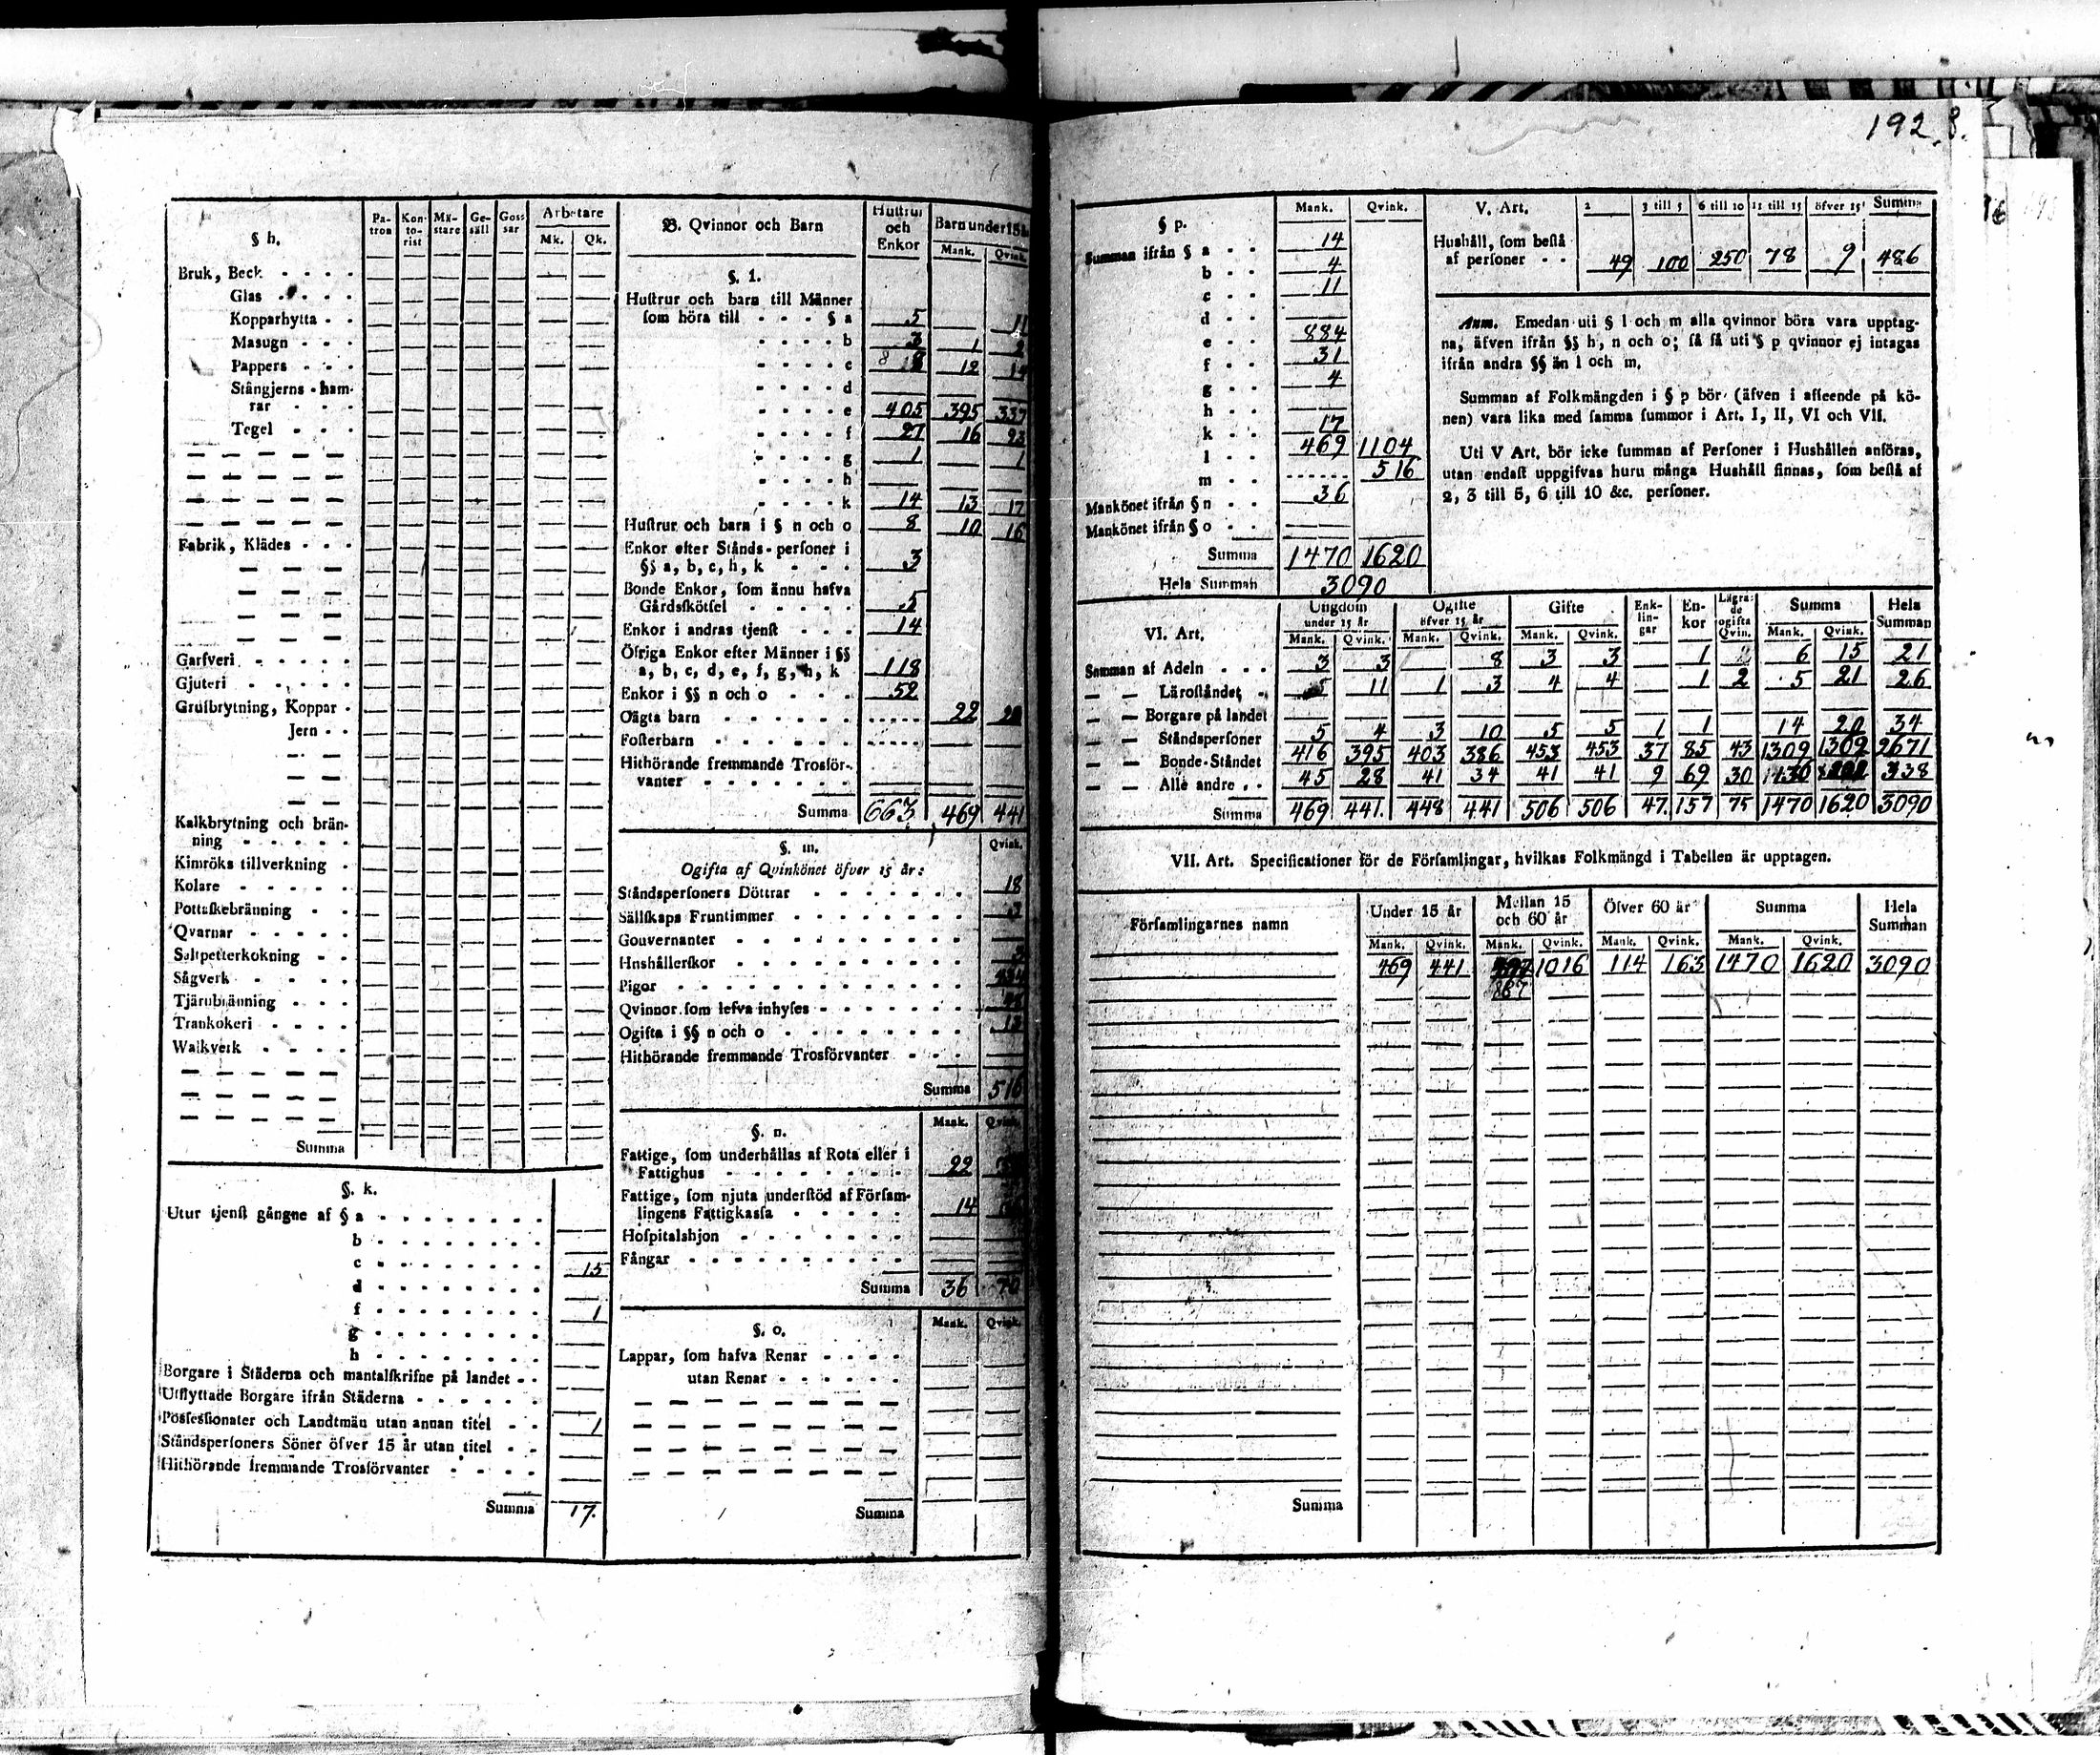 192.
8.
§ h.
Patron Kontorist Mästare Gesäll Gossar Arbetare
Mk. Qk.
Bruk, Beck
Glas
Kopparhytta
Masugn
Pappers
Stångjerns-hamrar
Tegel
Fabrik, Klädes
Garfveri
Gjuteri
Grufbrytning, Koppar
Jern
Kalkbrytning och bränning
Kimröks tillverkning
Kolare
Pottaskebränning
Qvarnar
Saltpetterkokning
Sågverk
Tjärubränning
Trankokeri
Walkverk
Summa
§. k.
Utur tjenst gångne af § a
b
c 15
d
f 1
g
h
Borgare i Städerna och mantalskrifne på landet
Utflyttade Borgare ifrån Städerna
Possessionater och Landtmän utan annan titel 1
Ståndspersoners Söner öfver 15 år utan titel
Hithörande fremmande Trosförvanter
Summa 17.
B. Qvinnor och Barn
Hustrur och Enkor Barn under 15 år
Mank. Qvink.
§. l.
Hustrur och barn till Männer
som höra till § a 5 11
b 3 1 2
c 8 12 14
d
e 405 395 337
f 27 16 23
g 1 1
h
k 14 13 17
Hustrur och barn i § n och o 8 10 16
Enkor efter Stånds-personer i
§§ a, b, c, h, k 3
Bonde Enkor, som ännu hafva
Gårdsskötsel 5
Enkor i andras tjenst 14
Öfriga Enkor efter Männer i §§
a, b, c, d, e, f, g, h, k 118
Enkor i §§ n och o 52
Oägta barn 22 20
Fosterbarn
Hithörande fremmande Trosförvanter
Summa 663 469 441
§. m. Qvink.
Ogifta af Qvinkönet öfver 15 år:
Ståndspersoners Döttrar 18
Sällskaps Fruntimmer 3
Gouvernanter
Hushållerskor 3
Pigor
Qvinnor som lefva inhyses
Ogifta i §§ n och o
Hithörande fremmande Trosförvanter
Summa 516
§. n. Mank. Qvink.
Fattige, som underhållas af Rota eller i
Fattighus 22
Fattige, som njuta understöd af Församlingens
Fattigkassa 14
Hospitalshjon
Fångar
Summa 36 70
§. o. Mank. Qvink.
Lappar, som hafva Renar
utan Renar
Summa
§ p. Mank. Qvink.
Summan ifrån § a 14
b 4
c 11
d
e 884
f 31
g 4
h
k 17
l 469 1104
m 516
Mankönet ifrån § n 36
Mankönet ifrån § o
Summa 1470 1620
Hela Summan 3090
V. Art. 2 3 till 5 6 till 10 11 till 15 öfver 15 Summa
Hushåll, som bestå
af personer 49 100 250 78 9 486
Anm. Emedan uti § l och m alla qvinnor böra vara upptag-
na, äfven ifrån §§ h, n och o; så få uti § p qvinnor ej intagas
ifrån andra §§ än l och m.
Summan af Folkmängden i § p bör (äfven i afseende på kö-
nen) vara lika med samma summor i Art. I, II, VI och VII.
Uti V Art. bör icke summan af Personer i Hushållen anföras,
utan endast uppgifvas huru många Hushåll finnas, som bestå af
2, 3 till 5, 6 till 10 &c. personer.
VI. Art.
Ungdom under 15 år Ogifte öfver 15 år Gifte Enklingar Enkor Lägrade ogifta Qvin. Summa Hela Summan
Mank. Qvink. Mank. Qvink. Mank. Qvink. Mank. Qvink.
Summan af Adeln 3 3 8 3 3 1 6 15 21
— — Läroståndet 11 1 3 4 4 1 2 5 21 26
— — Borgare på landet
— — Ståndspersoner 5 4 3 10 5 5 1 1 14 20 34
— — Bonde-Ståndet 416 395 403 386 453 453 37 85 43 1309 1362 2671
— — Alle andre 45 28 41 34 41 41 9 69 30 338
Summa 469 441. 448 441 506 506 47. 157 75 1470 1620 3090
VII. Art. Specificationer för de Församlingar, hvilkas Folkmängd i Tabellen är upptagen.
Församlingarnes namn Under 15 år Mellan 15 och 60 år Öfver 60 år Summa Hela Summan
Mank. Qvink. Mank. Qvink. Mank. Qvink. Mank. Qvink.
469 441 1016 114 163 1470 1620 3090
887
Summa